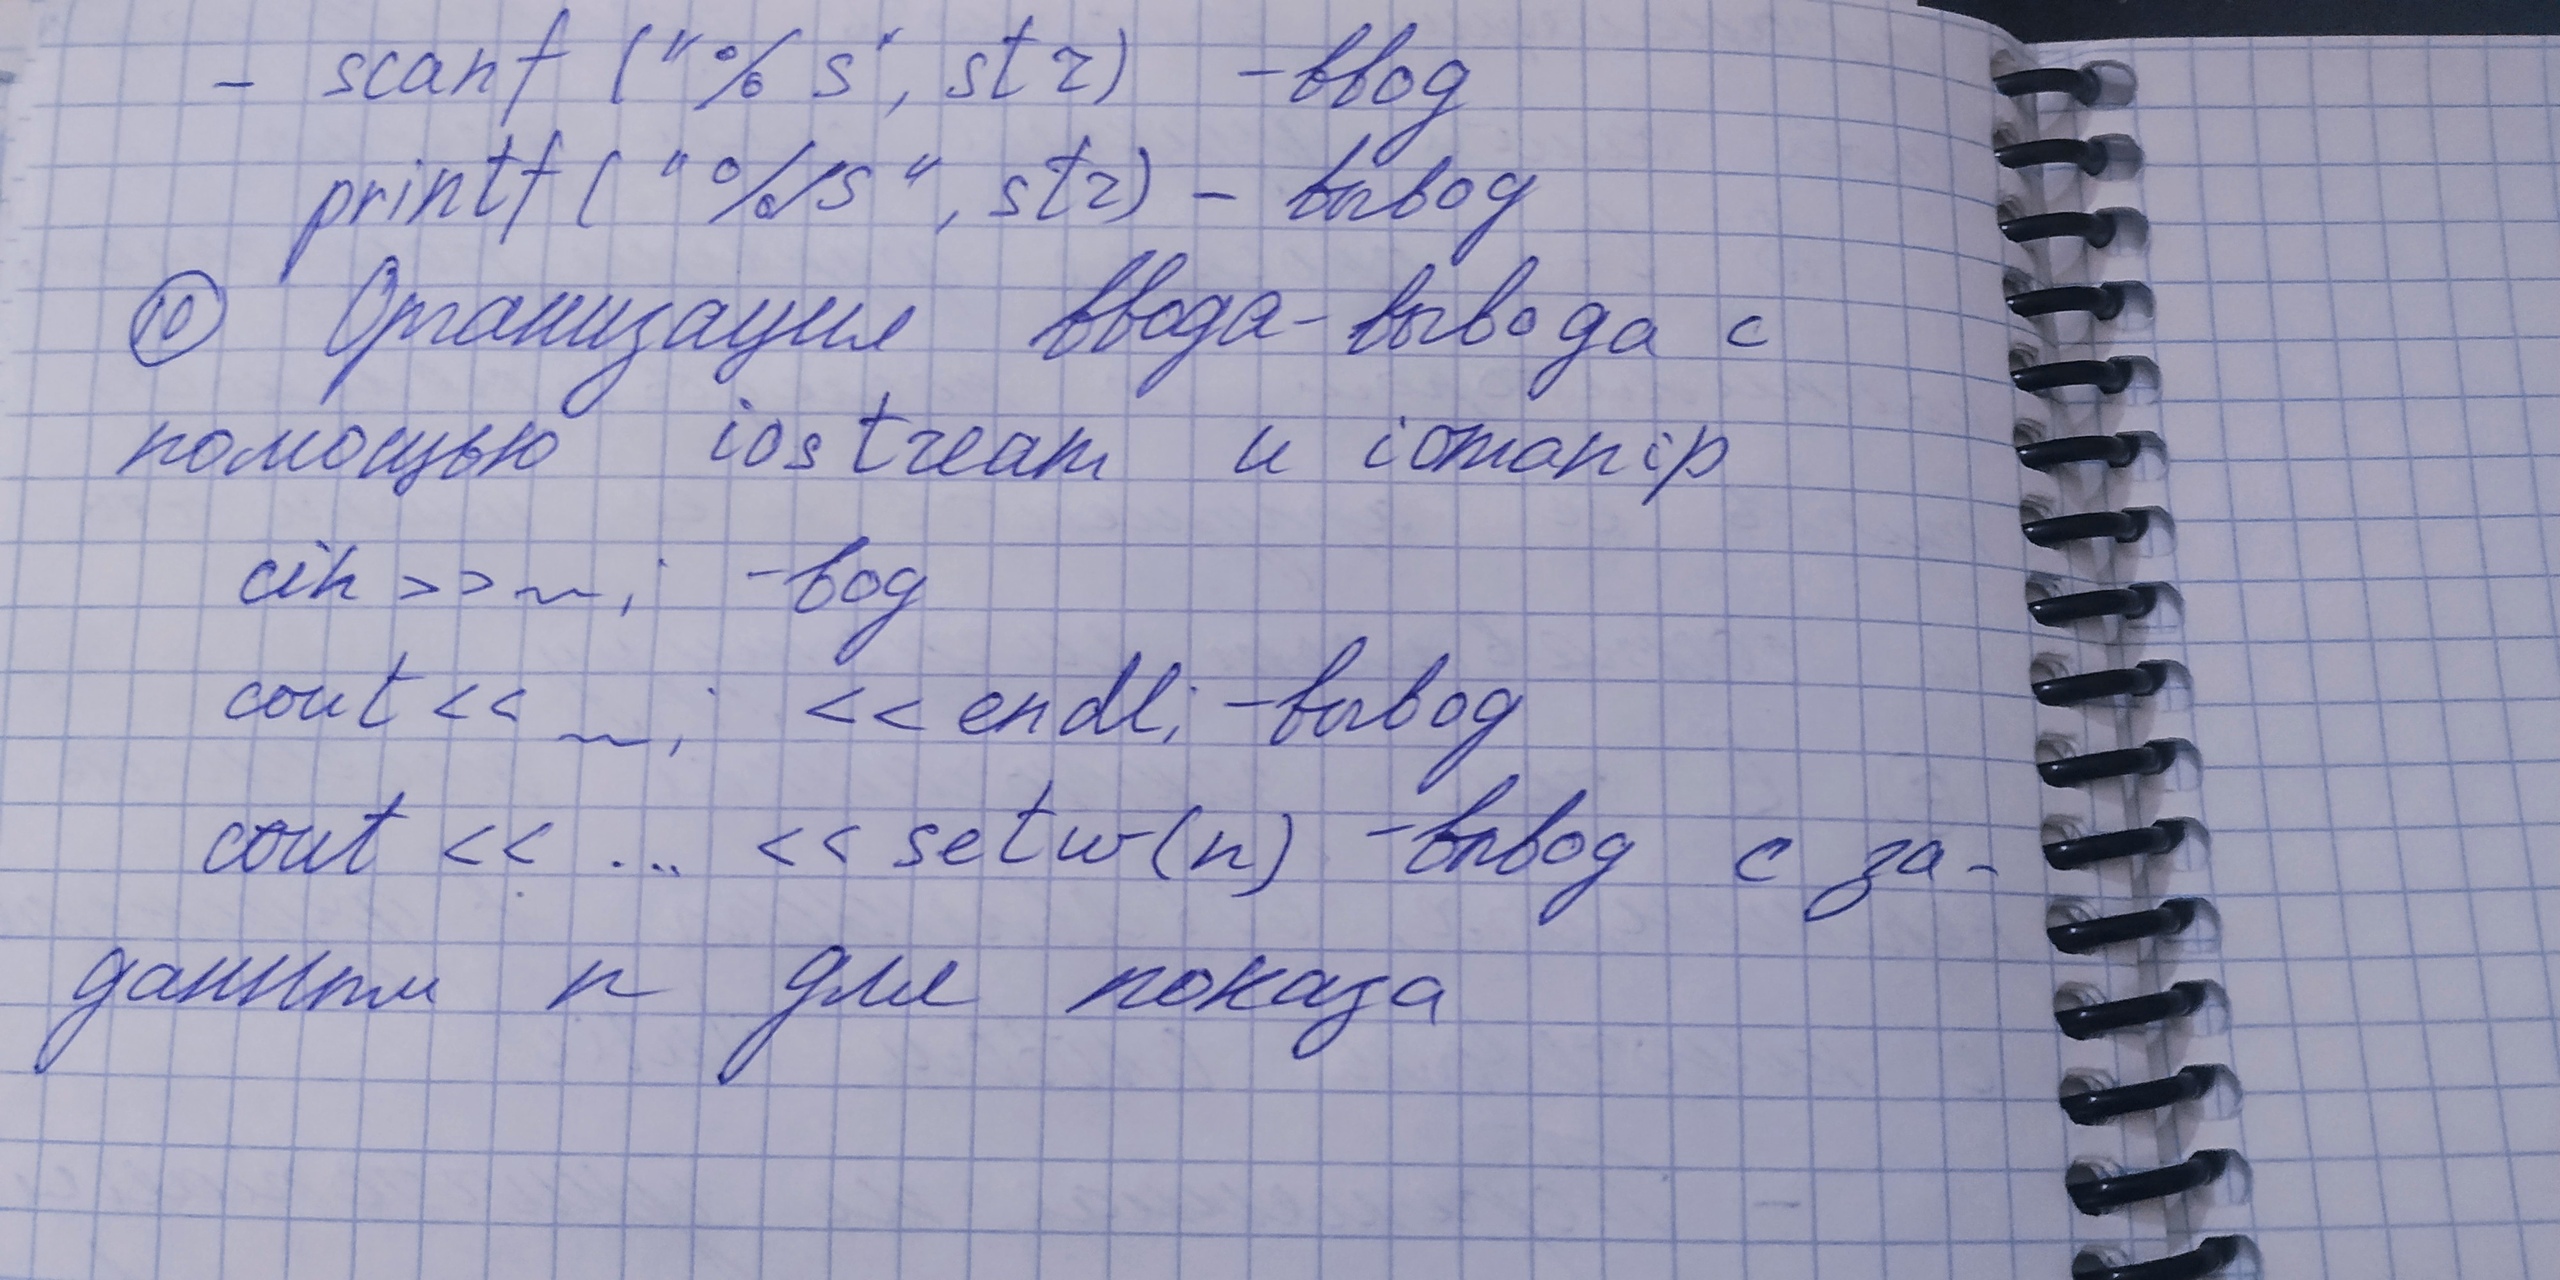 - scanf ("%s", str) - ввод
printf ("%s", str) - вывод
10 Организация ввода-вывода с
помощью iostream и iomanip
cin >> ~; - вод
cout << ~; << endl; - вывод
cout << ... << setw(n) - вывод с за-
данным n для показа